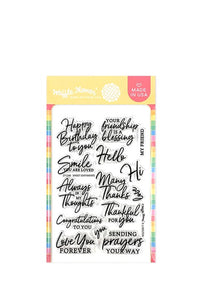 Waffle Flower
MADE IN USA
Happy
Birthday
to you
YOUR
friendship
IS A
blessing
MY FRIEND
Smile
YOU ARE LOVED
Hello
Hi
Always
IN MY
Thoughts
Many
Thanks
Thankful
FOR YOU
Congratulations
TO YOU
you
Love You
FOREVER
SENDING
prayers
YOUR WAY